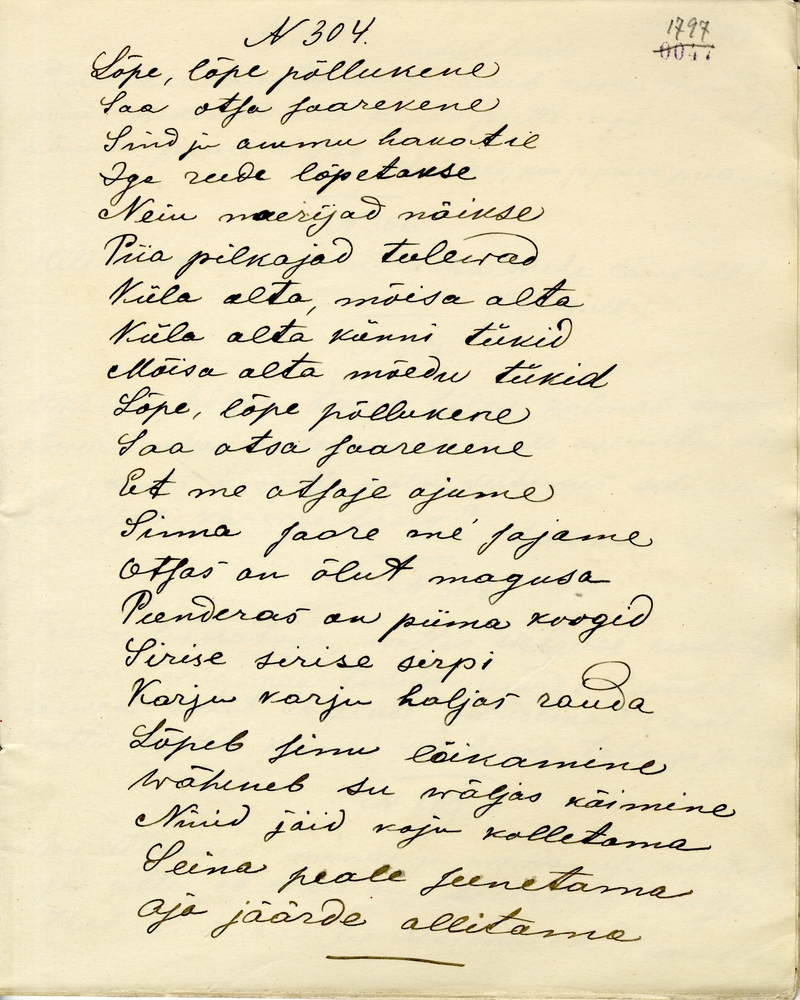 N 304.
1797
0047
Lõpe, lõpe põllukene
Saa otsa saarekene
Sind ju ammu hakatil
Iga reede lõpetakse
Neiu naerijad näikse
Piia pilkajad tulewad
Küla alta, mõisa alta
Küla alta künni tükid
Mõisa alta mõedu tükid
Lõpe, lõpe põllukene
Saa otsa saarekene
Et me otsaje ajume
Sinna saare me sajame
Otsas on õlut magusa
Peenderas on piima koogid
Sirise sirise sirpi
Karju karju haljas rauda
Lõpeb sinu lõikamine
Wäheneb su wäljas käimine
Nüüd jäid koju kolletama
Seina peale seenetama
Aja jäärde allitama